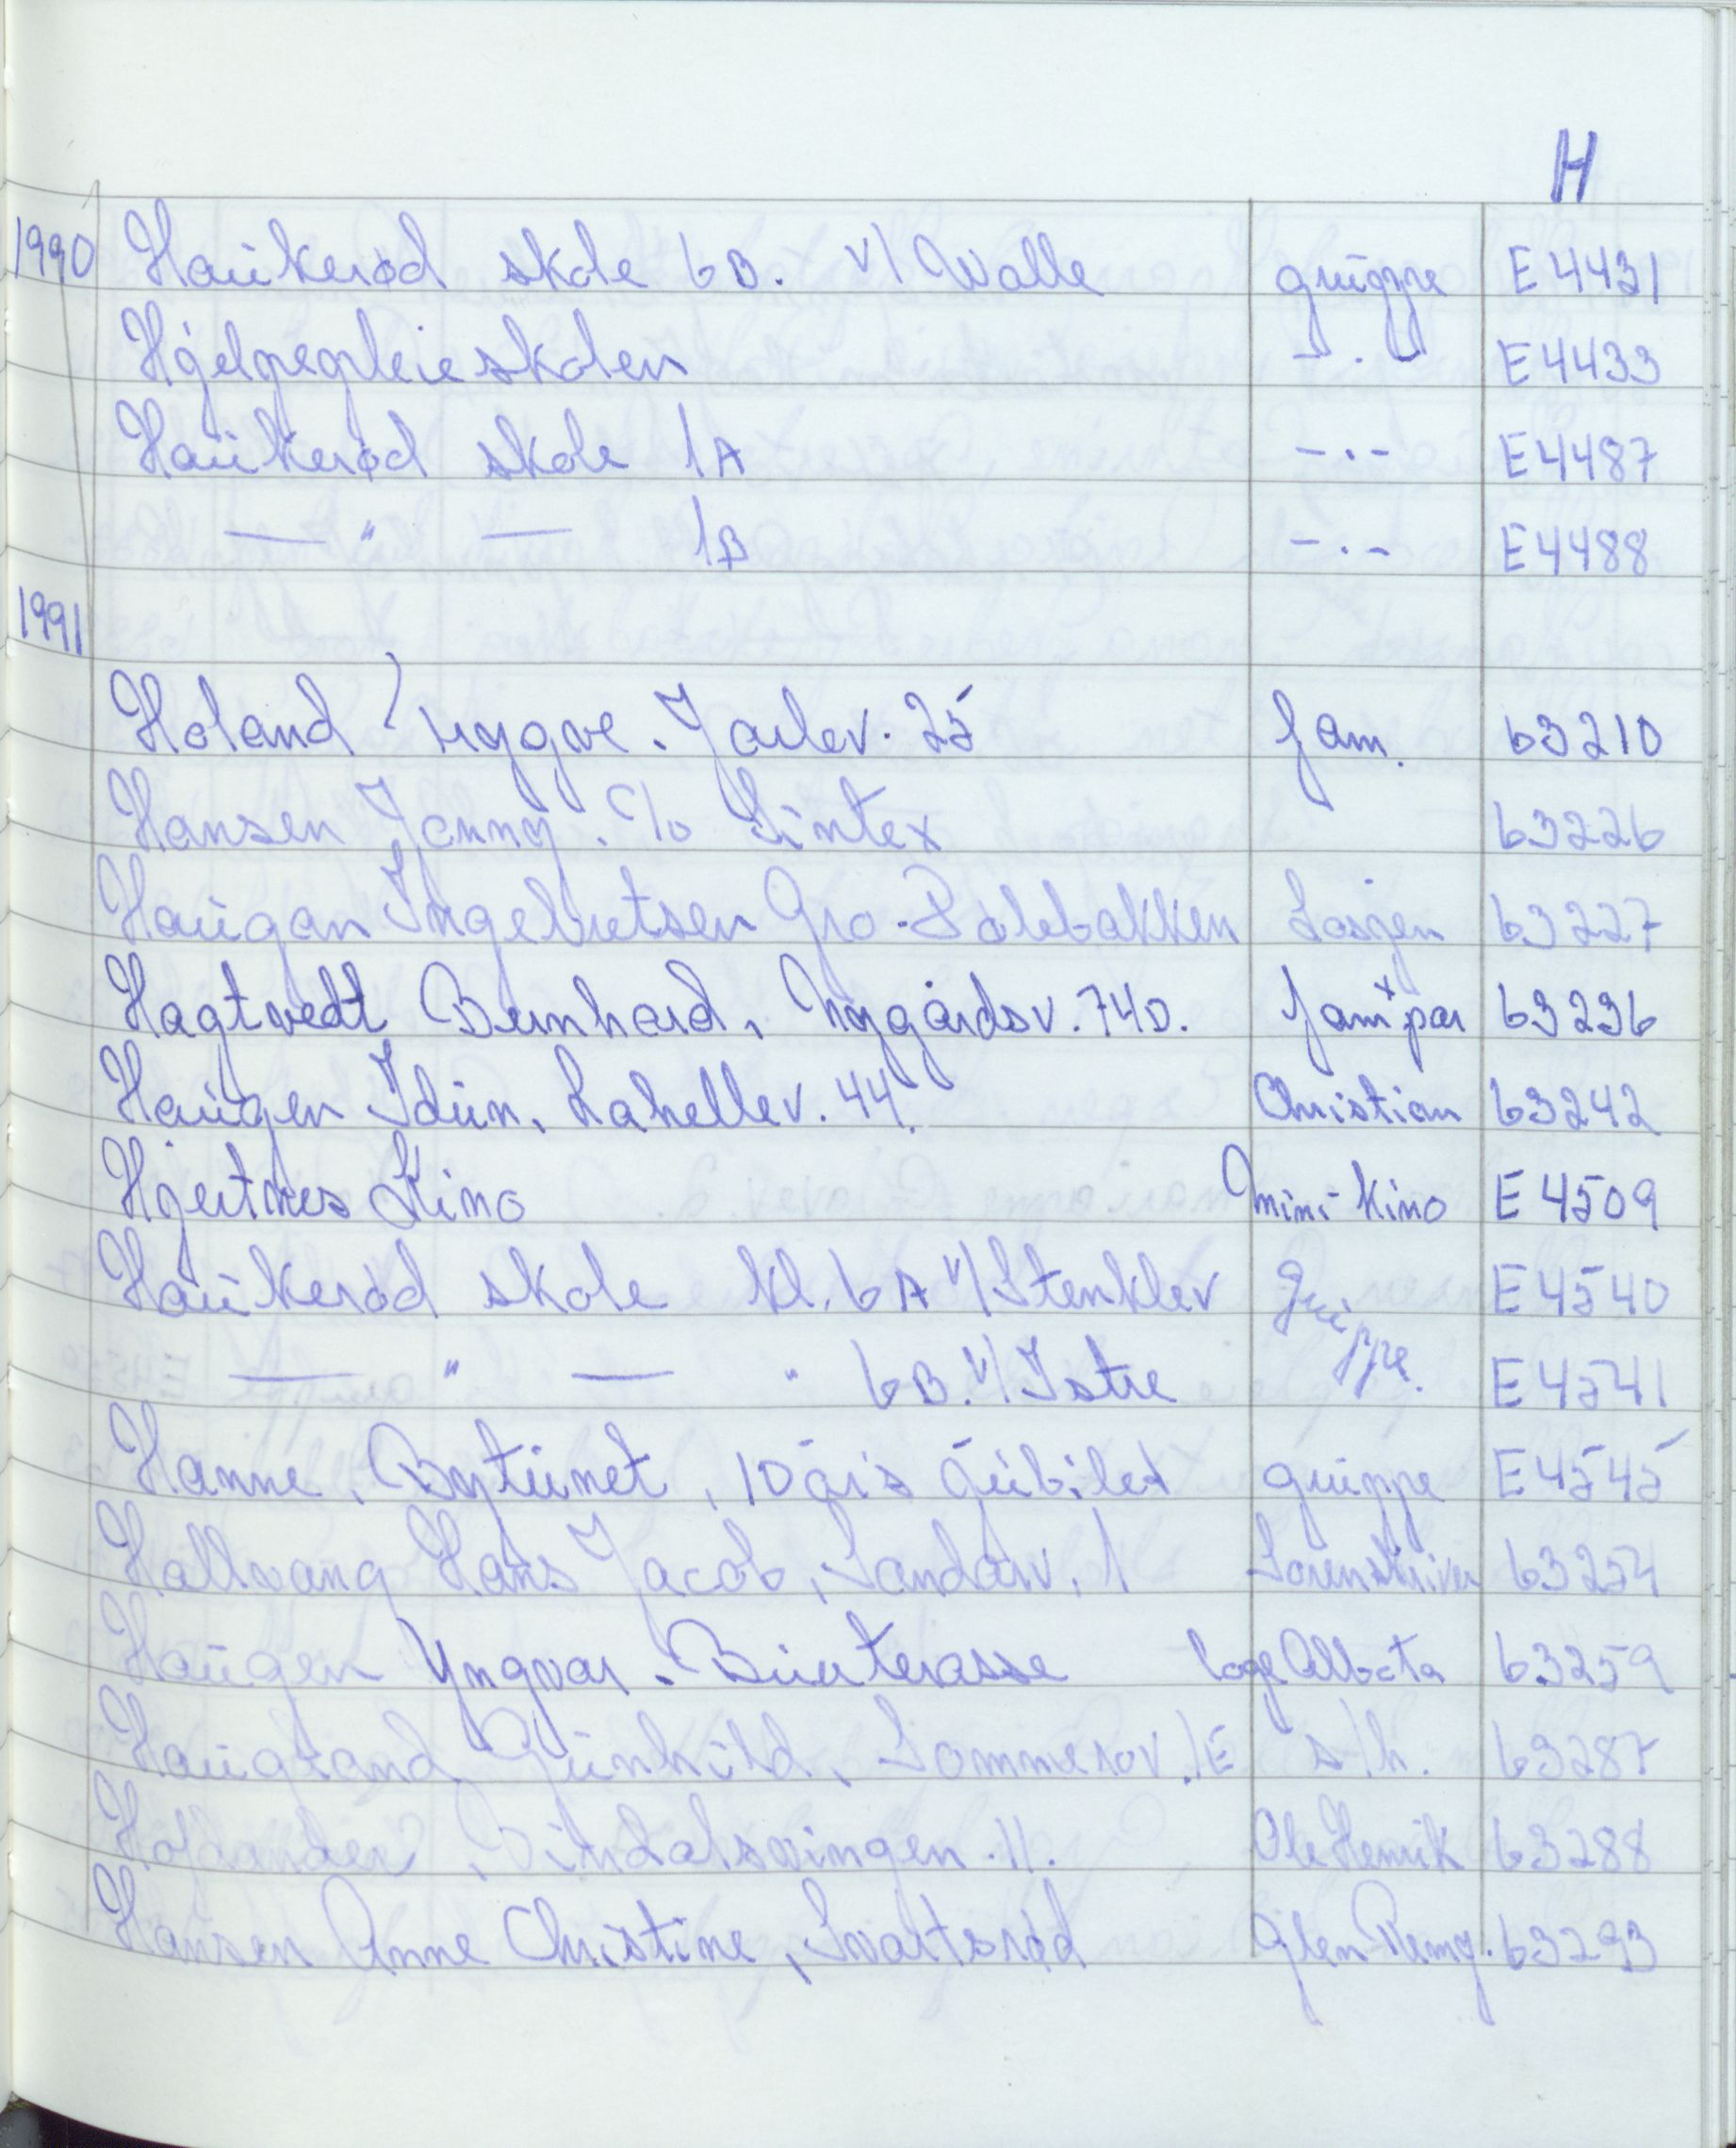 H
1990 Haukerød skole 6D. v/ Walle gruppe E4431
Hjelpepleieskolen -.- E4433
Haukerød skole 1A -.- E4487
— " — 1B -.- E4488
1991
Holand Tryggve. Jarlev. 25 fam. 63210
Hansen Jenny. c/o Sintex 63226
Haugan Ingebretsen Gro. Solebakken 63227
Hagtvedt Bernhard, Nygårdsv. 74D. fam + par 63236
Haugen Idun, Lahellev. 44. Christian 63242
Hjertnes Kino Mini-Kino E4509
Haukerød skole kl. 6A v/Stenklev Gruppe. E4540
— " — " 6B. v/Istre E4541
Hanne, Bytunet, 10 års jubilet gruppe E4545
Hallvang Hans Jacob, Sandarv. 1 Sorenskriver 63254
Haugen Yngvar. Bueterasse loge 63259
Haugland Gunhild, Sommerov. 1E s/h. 63287
Vindalsvingen. 11. Ole Henrik 63288
Hansen Anne Christine, Svartsrød Glen Remy. 63293